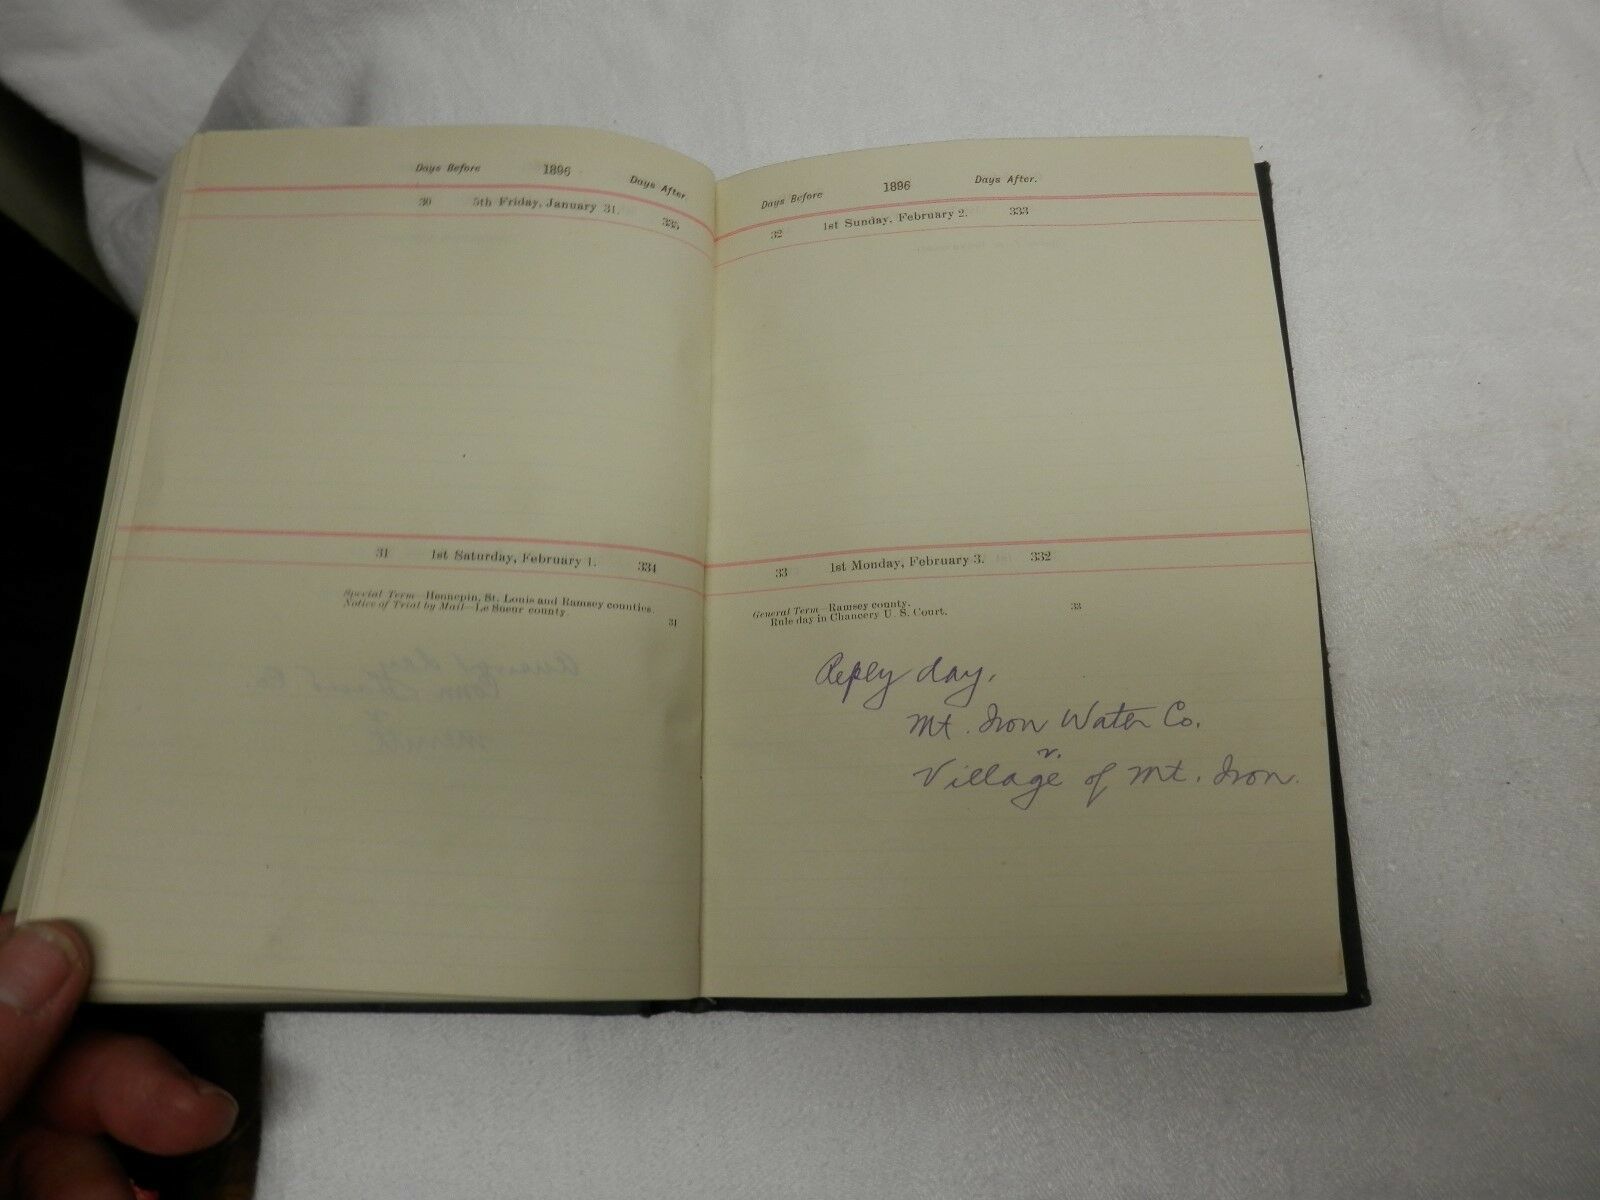 Days Before 1896 Days After
30 5th Friday, January 31. 335
31 1st Saturday, February 1. 334
Special Term—Hennepin, St. Louis and Ramsey counties.
Notice of Trial by Mail—Le Sueur county.
31
Days Before 1896 Days After.
32 1st Sunday, February 2. 333
33 1st Monday, February 3. 332
General Term—Ramsey county.
Rule day in Chancery U. S. Court.
33
Reply day,
Mt. Iron Water Co.
v.
Village of Mt. Iron.